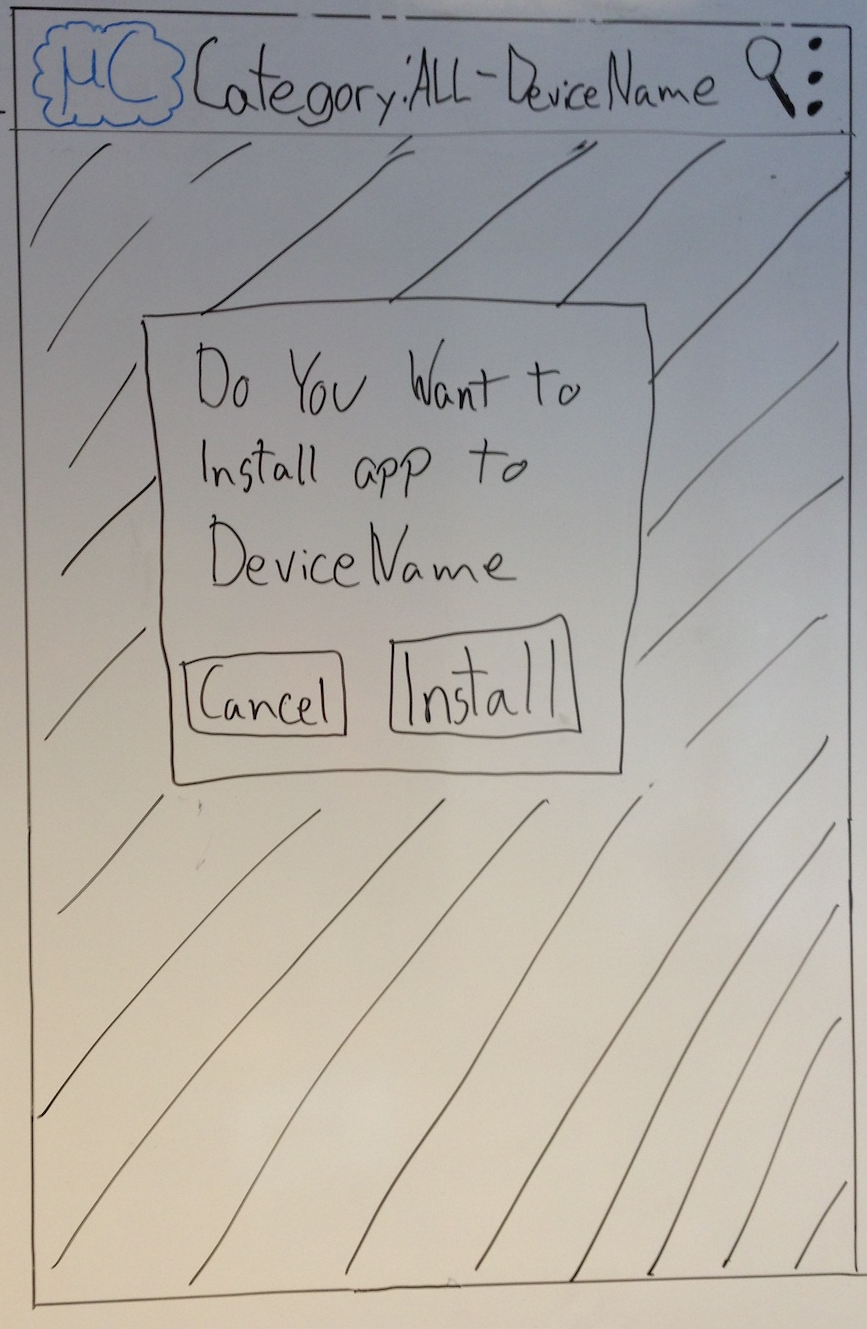 μC Category:ALL-DeviceName
Do You Want to
Install app to
DeviceName
Cancel Install